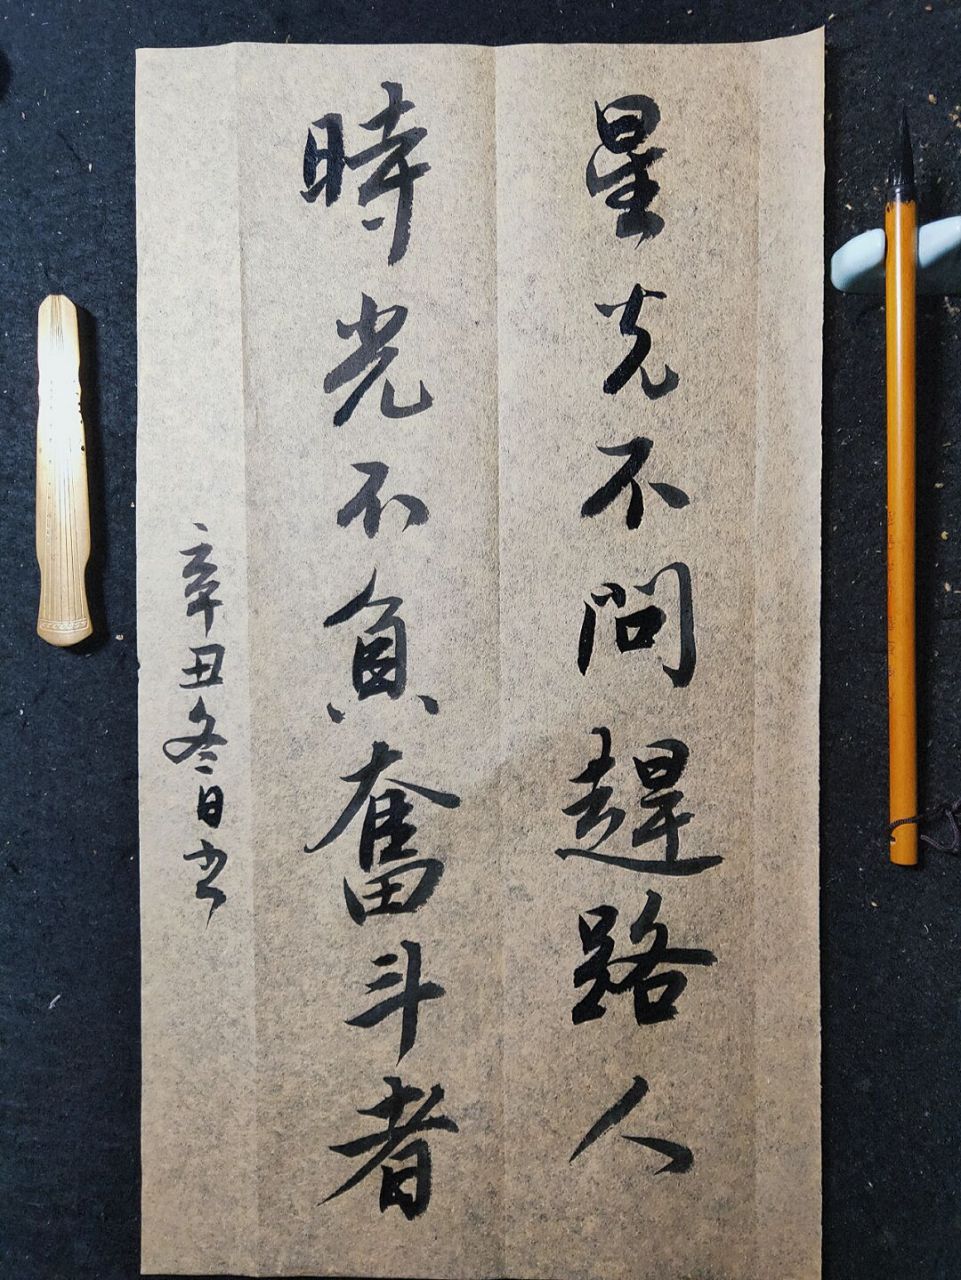 星光不問趕路人
時光不負奮斗者
辛丑冬日书